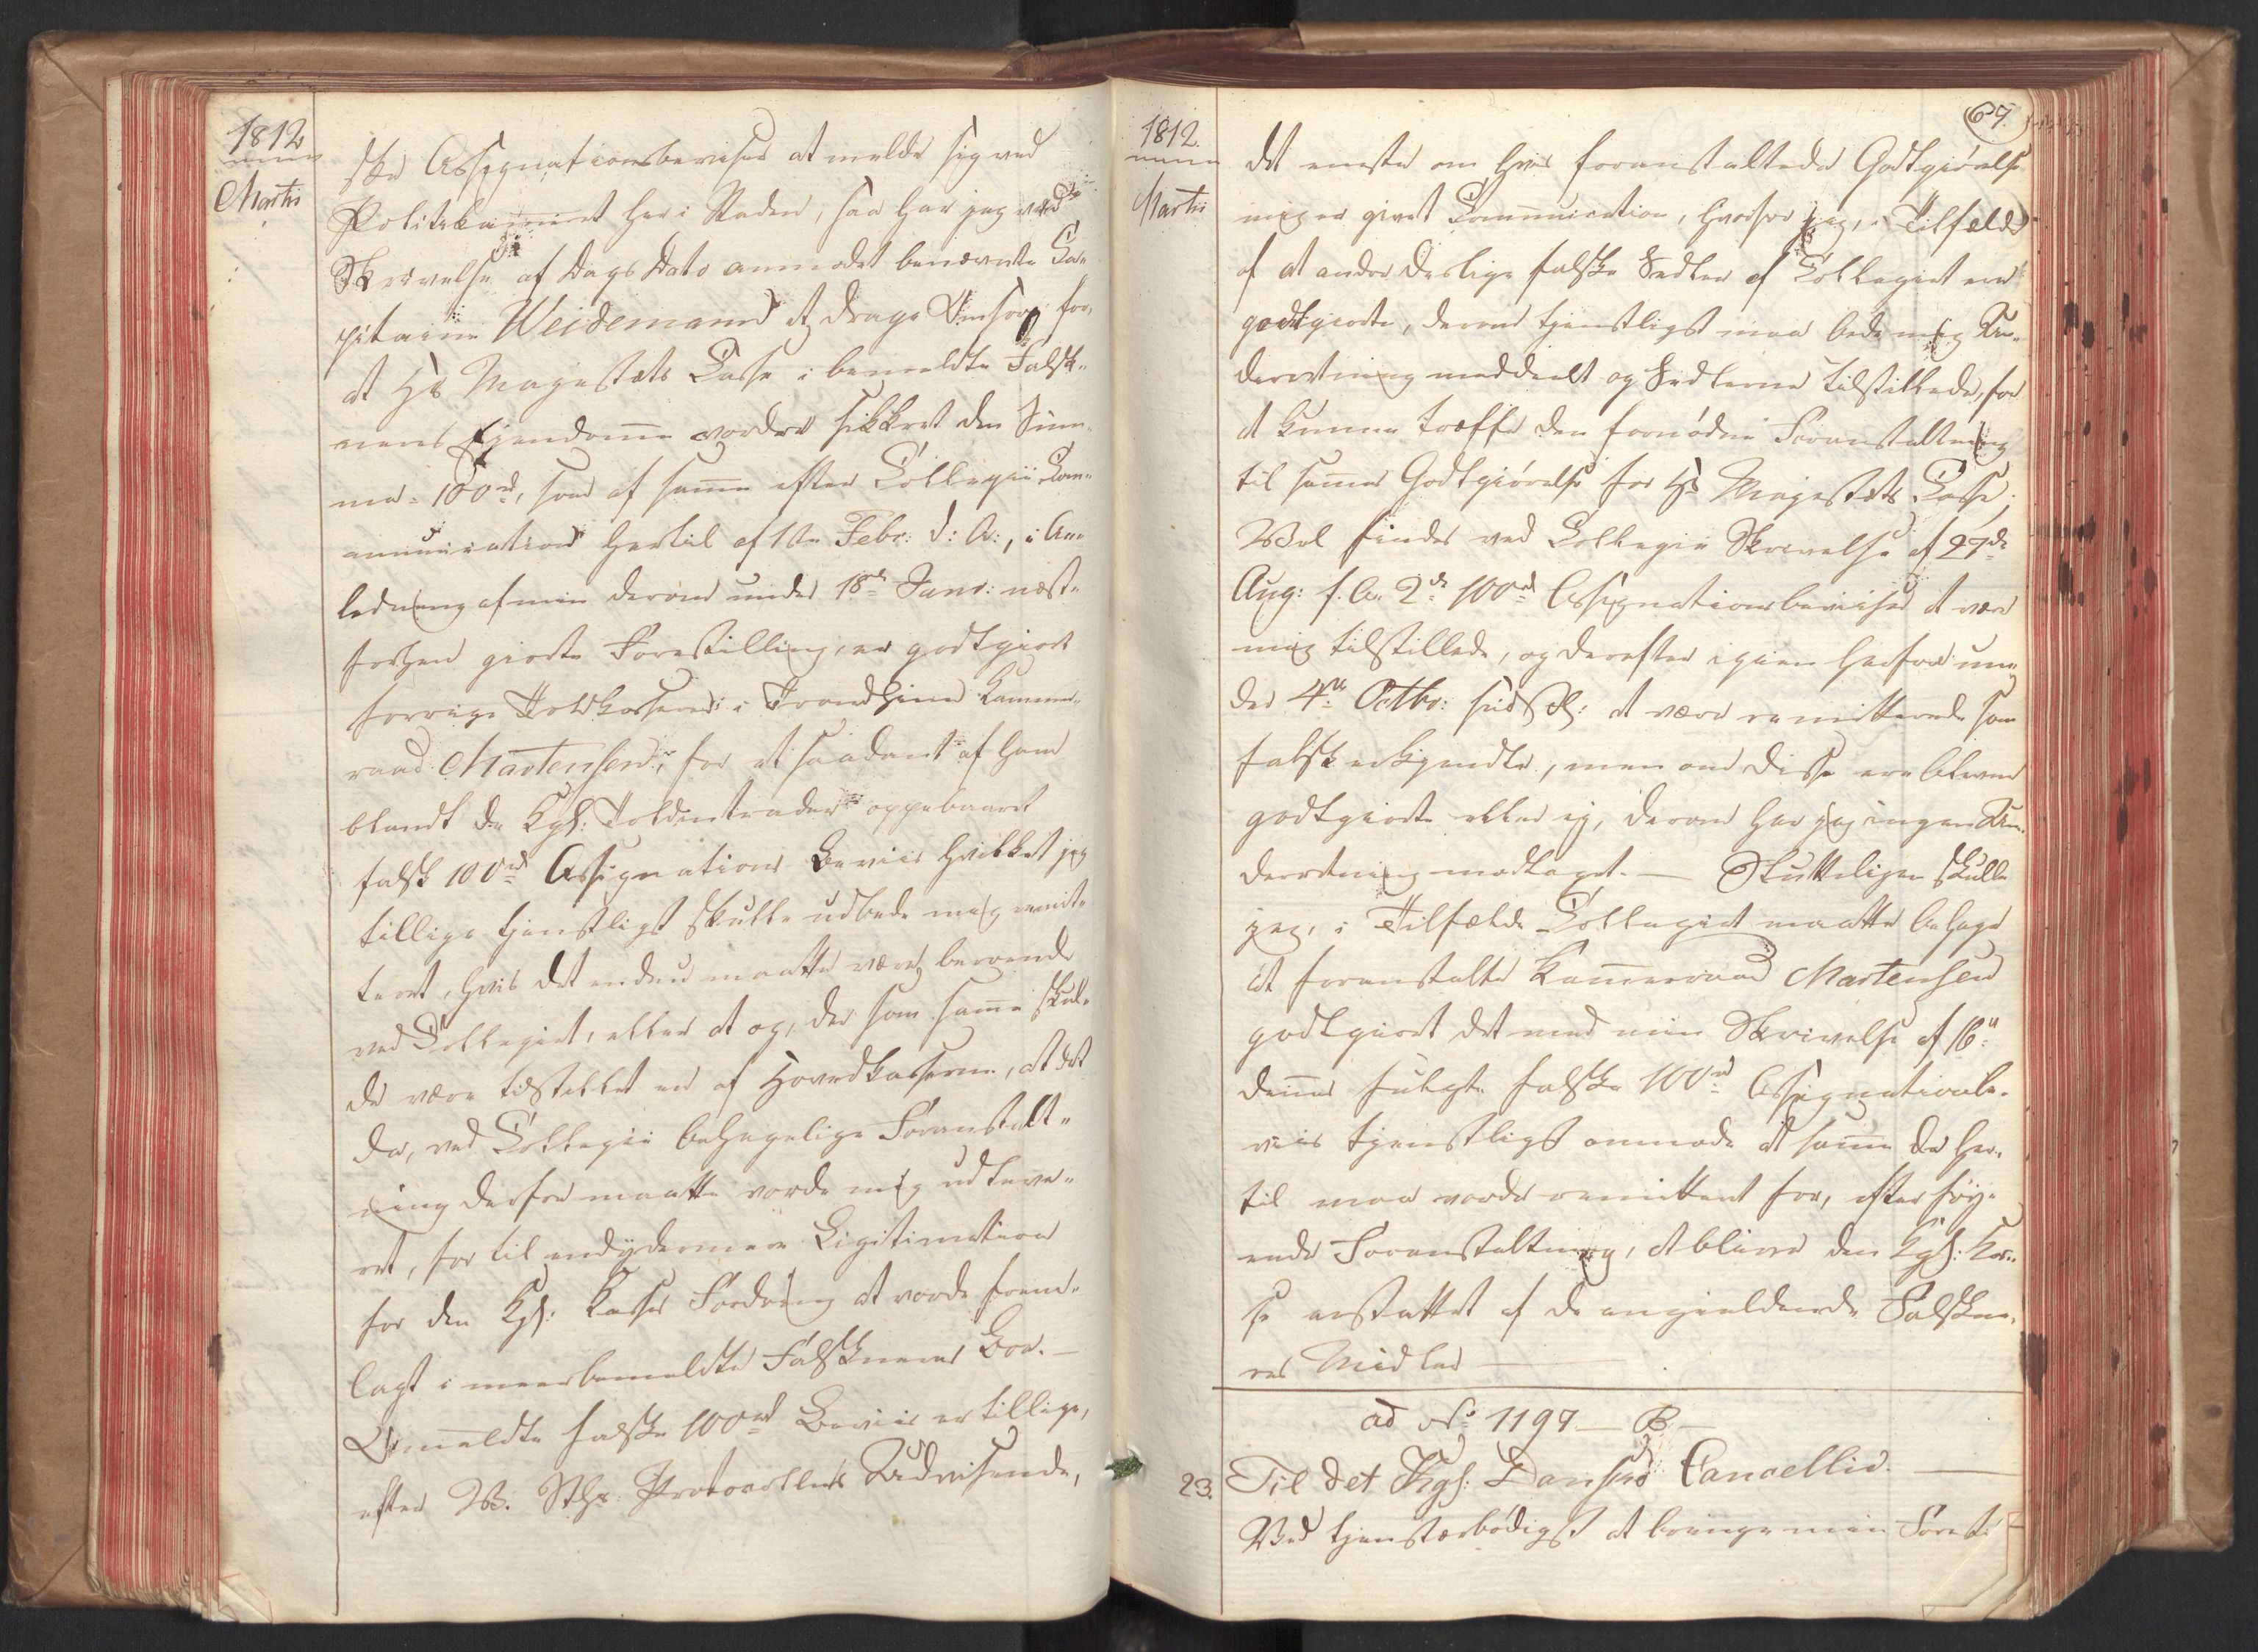 1812
Martii
ske Assignationsbeviser at melde sig ved
Politikammeret her i Staden, saa har jeg ved
Skrivelse af Dags Dato anmodet benævnte Ca„
pitaine Weidemann at drage Omsorg for,
at Hs Majestæts Casse i bemeldte Falsk„
neres Ejendomme vorder sikkret den Sum„
ma 100 rd, som af samme efter Collegii Com„
munication hertil af 1te Febr: d: A:, i An„
ledning af min derom under 18de Janv: næst„
forhen giorte Forestilling, er godtgiort
forrige Toldkasserer i Trondhiem Kammer„
raad Martensen, for et saadant af ham
blandt de Kgl: Toldintrader oppebaaret
falsk 100 rd Assignations Beviis hvilket jeg
tillige tjenstligst skulle udbede mig remit„
teret, hvis det endnu maatte være beroende
ved Collegiet, eller at og, der som samme skul„
de være tilstillet en af Hovedkasserne, at det
da, ved Collegii behagelige Foranstalt„
ning derfra maatte vorde mig udleve„
ret, for til endydermere Legitimation
for den Kgl: Kasses Fordring at vorde frem„
lagt i meerbemeldte Falskneres Boe. —
Ommeldte falske 100 rd Beviis er tillige,
efter W. Sths Protocollens Udvisende,
1812.
Martii
69.
det eneste om hvis foranstaltede Godtgiørelse
mig er givet Communication, hvorfor jeg, i Tilfælde
af at andre deslige falske Sedler af Collegiet ere
godtgiorte, derom tjenstligst maa bede mig Un„
derretning meddeelt og Sedlerne tilstillede, for
at kunne træffe den fornødne Foranstaltning
til sammes Godtgiørelse for Hs Majestæts Casse;
Vel findes ved Collegii Skrivelse af 27de
Aug: f. A. 2de 100 rd Assignationsbeviser at være
mig tilstillede, og derefter igien herfra un„
der 4de Octbr: sidstl: at være remitterede som
falsk erkjendte, men om disse ere blevne
godtgiorte eller ej, derom har jeg ingen Un„
derretning modtaget. — Sluttelig skulle
jeg, i Tilfælde Collegiet maatte behage
at foranstalte Kammerraad Martensen
godtgiort det med min Skrivelse af 16de
dennes fulgte falske 100 rd Assignationsbe„
viis tjenstligst anmode at samme da her„
til maa vorde remitteret for, efter føj„
ende Foranstaltning, at blive den Kgl: Kas„
se erstattet af de angieldende Falskne„
res Midler —
ad No 1197 — B —
23. Til det Kgl: Danske Cancellie. —
Ved tjenstærbødigst at bringe min Forest: